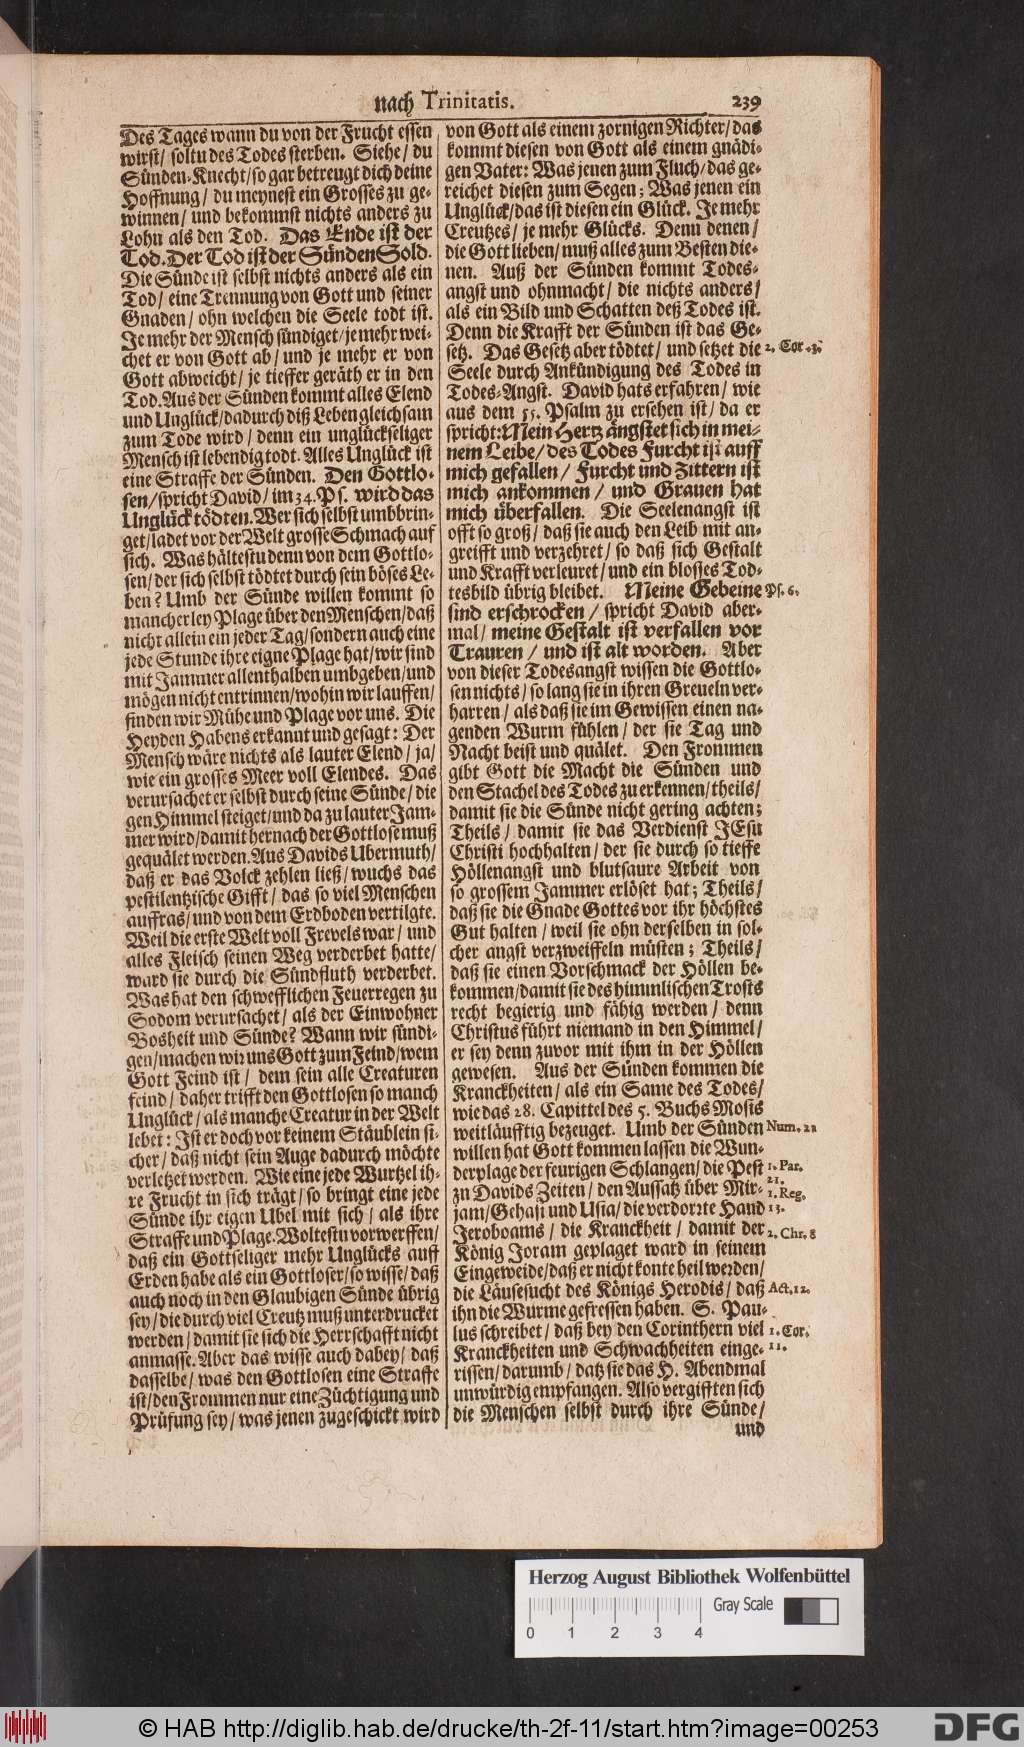 nach Trinitatis. 239
Des Tages wann du von der Frucht essen
wirst/ soltu des Todes sterben. Siehe/ du
Sünden-Knecht/ so gar betreugt dich deine
Hoffnung/ du meynest ein Grosses zu ge-
winnen/ und bekommst nichts anders zu
Lohn als den Tod. Das Ende ist der
Tod. Der Tod ist der Sünden Sold.
Die Sünde ist selbst nichts anders als ein
Tod/ eine Trennung von Gott und seiner
Gnaden/ ohn welchen die Seele todt ist.
Je mehr der Mensch sündiget/ je mehr wei-
chet er von Gott ab/ und je mehr er von
Gott abweicht/ je tieffer geräth er in den
Tod. Aus der Sünden kommt alles Elend
und Unglück/ dadurch diß Leben gleichsam
zum Tode wird/ denn ein unglückseliger
Mensch ist lebendig todt. Alles Unglück ist
eine Straffe der Sünden. Den Gottlo-
sen/ spricht David/ im 34. Ps. wird das
Unglück tödten. Wer sich selbst umbbrin-
get/ ladet vor der Welt grosse Schmach auf
sich. Was hältestu denn von dem Gottlo-
sen/ der sich selbst tödtet durch sein böses Le-
ben? Umb der Sünde willen kommt so
mancherley Plage über den Menschen/ daß
nicht allein ein jeder Tag/ sondern auch eine
jede Stunde ihre eigne Plage hat/ wir sind
mit Jammer allenthalben umbgeben/ und
mögen nicht entrinnen/ wohin wir lauffen/
finden wir Mühe und Plage vor uns. Die
Heyden Habens erkannt und gesagt: Der
Mensch wäre nichts als lauter Elend/ ja/
wie ein grosses Meer voll Elendes. Das
verursachet er selbst durch seine Sünde/ die
gen Himmel steiget/ und da zu lauter Jam-
mer wird/ damit hernach der Gottlose muß
gequälet werden. Aus Davids Ubermuth/
daß er das Volck zehlen ließ/ wuchs das
pestilentzische Gifft/ das so viel Menschen
auffras/ und von dem Erdboden vertilgte.
Weil die erste Welt voll Frevels war/ und
alles Fleisch seinen Weg verderbet hatte/
ward sie durch die Sündfluth verderbet.
Was hat den schwefflichen Feuerregen zu
Sodom verursachet/ als der Einwohner
Bosheit und Sünde? Wann wir sündi-
gen/ machen wir uns Gott zum Feind/ wem
Gott Feind ist/ dem sein alle Creaturen
feind/ daher trifft den Gottlosen so manch
Unglück/ als manche Creatur in der Welt
lebet: Ist er doch vor keinem Stäublein si-
cher/ daß nicht sein Auge dadurch möchte
verletzet werden. Wie eine jede Wurtzel ih-
re Frucht in sich trägt/ so bringt eine jede
Sünde ihr eigen Ubel mit sich/ als ihre
Straffe und Plage. Woltestu vorwerffen/
daß ein Gottseliger mehr Unglücks auff
Erden habe als ein Gottloser/ so wisse/ daß
auch noch in den Glaubigen Sünde übrig
sey/ die durch viel Creutz muß unterdrucket
werden/ damit sie sich die Herrschafft nicht
anmasse. Aber das wisse auch dabey/ daß
dasselbe/ was den Gottlosen eine Straffe
ist/ den Frommen nur eine Züchtigung und
Prüfung sey/ was jenen zugeschickt wird
von Gott als einem zornigen Richter/ das
kommt diesen von Gott als einem gnädi-
gen Vater: Was jenen zum Fluch/ das ge-
reichet diesen zum Segen; Was jenen ein
Unglück/ das ist diesen ein Glück. Je mehr
Creutzes/ je mehr Glücks. Denn denen/
die Gott lieben/ muß alles zum Besten die-
nen. Auß der Sünden kommt Todes-
angst und ohnmacht/ die nichts anders/
als ein Bild und Schatten deß Todes ist.
Denn die Krafft der Sünden ist das Ge-
setz. Das Gesetz aber tödtet/ und setzet die 2. Cor. 3.
Seele durch Ankündigung des Todes in
Todes-Angst. David hats erfahren/ wie
aus dem 55. Psalm zu ersehen ist/ da er
spricht: Mein Hertz ängstet sich in mei-
nem Leibe/ des Todes Furcht ist auff
mich gefallen/ Furcht und Zittern ist
mich ankommen/ und Grauen hat
mich überfallen. Die Seelenangst ist
offt so groß/ daß sie auch den Leib mit an-
greifft und verzehret/ so daß sich Gestalt
und Krafft verleuret/ und ein blosses Tod-
tesbild übrig bleibet. Meine Gebeine Ps. 6.
sind erschrocken/ spricht David aber-
mal/ meine Gestalt ist verfallen vor
Trauren/ und ist alt worden. Aber
von dieser Todesangst wissen die Gottlo-
sen nichts/ so lang sie in ihren Greueln ver-
harren/ als daß sie im Gewissen einen na-
genden Wurm fühlen/ der sie Tag und
Nacht beist und quälet. Den Frommen
gibt Gott die Macht die Sünden und
den Stachel des Todes zu erkennen/ theils/
damit sie die Sünde nicht gering achten;
Theils/ damit sie das Verdienst JEsu
Christi hochhalten/ der sie durch so tieffe
Höllenangst und blutsaure Arbeit von
so grossem Jammer erlöset hat; Theils/
daß sie die Gnade Gottes vor ihr höchstes
Gut halten/ weil sie ohn derselben in sol-
cher angst verzweiffeln müsten; Theils/
daß sie einen Vorschmack der Höllen be-
kommen/ damit sie des himmlischen Trosts
recht begierig und fähig werden/ denn
Christus führt niemand in den Himmel/
er sey denn zuvor mit ihm in der Höllen
gewesen. Aus der Sünden kommen die
Kranckheiten/ als ein Same des Todes/
wie das 28. Capittel des 5. Buchs Mosis
weitläufftig bezeuget. Umb der Sünden Num. 21
willen hat Gott kommen lassen die Wun-
derplage der feurigen Schlangen/ die Pest 1. Par. 21.
zu Davids Zeiten/ den Aussatz über Mir- 1. Reg.
jam/ Gehasi und Usia/ die verdorrte Hand 13.
Jeroboams/ die Kranckheit/ damit der 2. Chr. 8
König Joram geplaget ward in seinem
Eingeweide/ daß er nicht konte heil werden/
die Läusesucht des Königs Herodis/ daß Act. 12.
ihn die Wurme gefressen haben. S. Pau-
lus schreibet/ daß bey den Corinthern viel 1. Cor.
Kranckheiten und Schwachheiten einge- 11.
rissen/ darumb/ datz sie das H. Abendmal
unwürdig empfangen. Also vergifften sich
die Menschen selbst durch ihre Sünde/
und
Herzog August Bibliothek Wolfenbüttel
Gray Scale
0 1 2 3 4
© HAB http://diglib.hab.de/drucke/th-2f-11/start.htm?image=00253
DFG